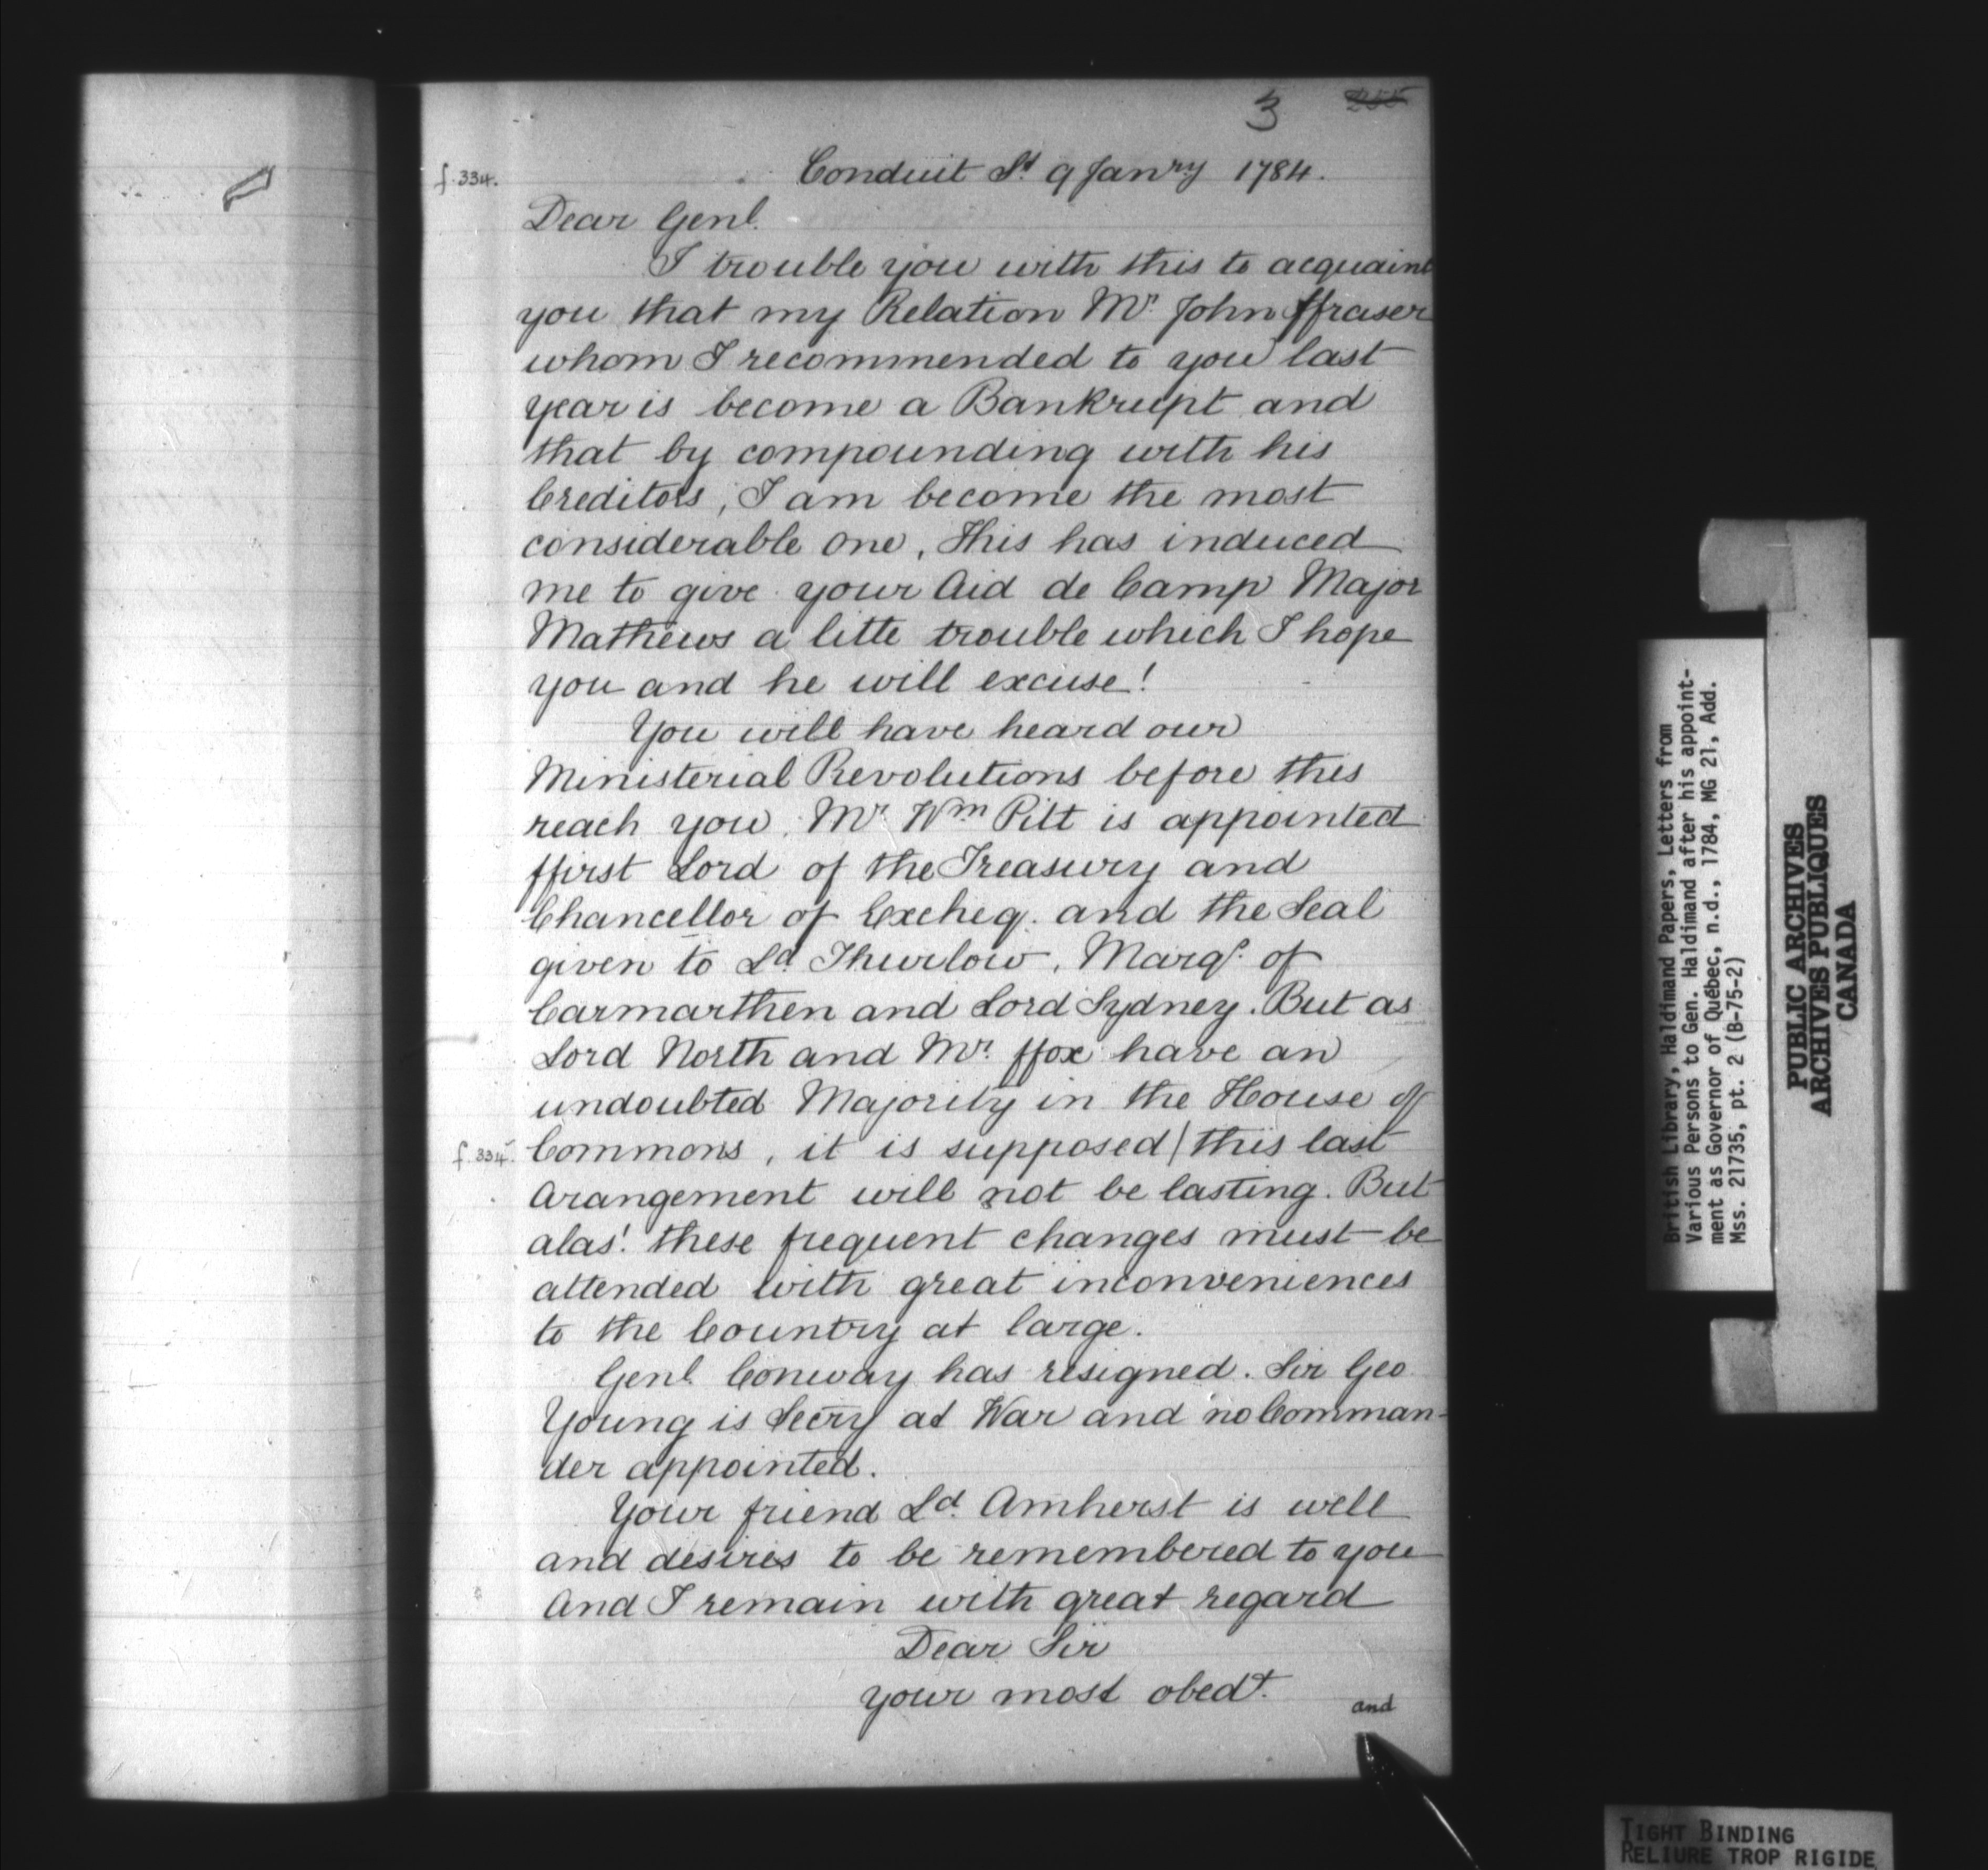 3
f.334.
Conduit St 9 Janry 1784.
Dear Genl.
I trouble you with this to acquaint
you that my Relation Mr. John ffraser
whom I recommended to you last
year is become a Bankrupt and
that by compounding with his
Creditors, I am become the most
considerable one, This has induced
me to give your Aid de Camp Major
Mathews a litte trouble which I hope
you and he will excuse!
You will have heard our
Ministerial Revolutions before this
reach you. Mr Wm Pitt is appointed
ffirst Lord of the Treasury and
Chancellor of Excheq. and the Seal
given to Ld Thurlow, Marqs. of
Carmarthen and Lord Sydney. But as
Lord North and Mr. ffox have an
undoubted Majority in the House of
f.334. Commons, it is supposed / this last
Arangement will not be lasting. But
alas! these frequent changes must be
attended with great inconveniences
to the Country at large.
Genl. Conway has resigned. Sir Geo
Young is Secry at War and no Comman-
der appointed.
Your friend Ld. Amherst is well
and desires to be remembered to you
And I remain with great regard
Dear Sir
your most obedt.
and
British Library, Haldimand Papers, Letters from
Various Persons to Gen. Haldimand after his appoint-
ment as Governor of Québec, n.d., 1784, MG 21, Add.
Mss. 21735, pt. 2 (B-75-2)
PUBLIC ARCHIVES
ARCHIVES PUBLIQUES
CANADA
TIGHT BINDING
RELIURE TROP RIGIDE